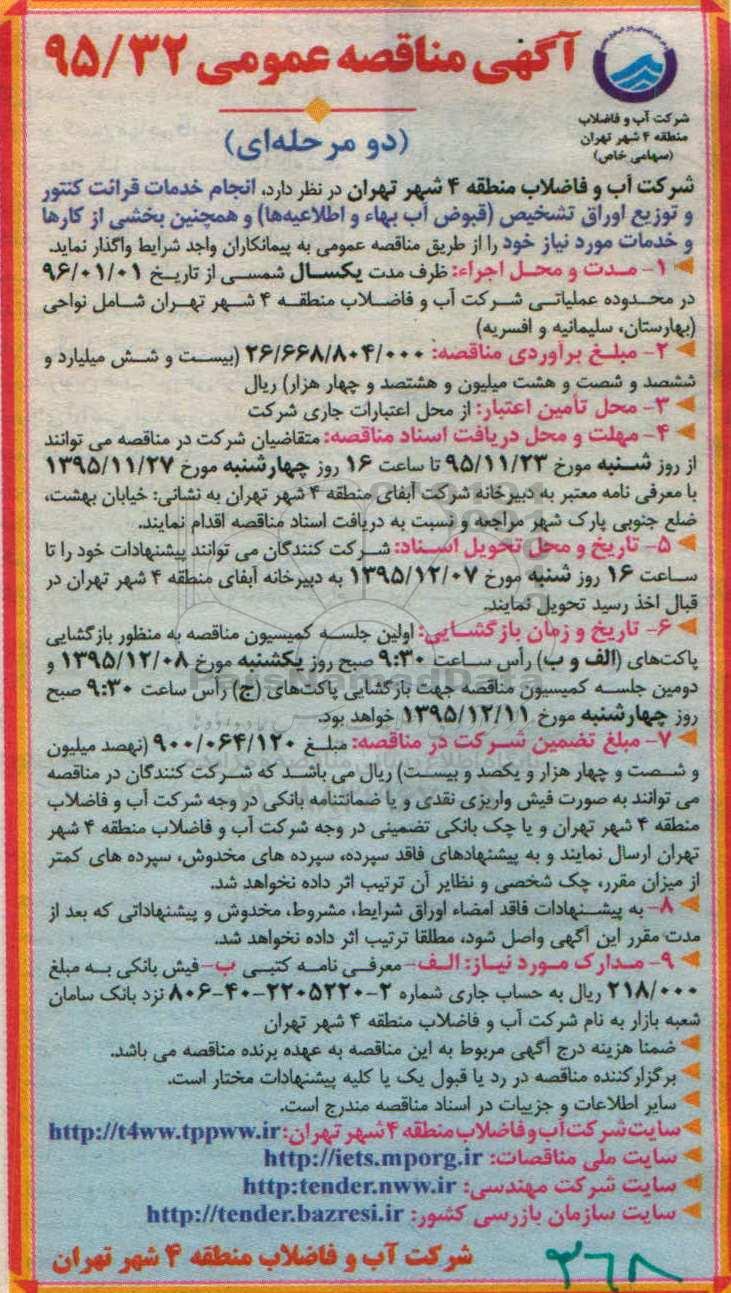 آگهی مناقصه عمومی ۹۵/۳۲
شرکت آب و فاضلاب
منطقه ۴ شهر تهران
(سهامی خاص)
(دو مرحله‌ای)
شرکت آب و فاضلاب منطقه ۴ شهر تهران در نظر دارد، انجام خدمات قرائت کنتور
و توزیع اوراق تشخیص (قبوض آب بهاء و اطلاعیه‌ها) و همچنین بخشی از کارها
و خدمات مورد نیاز خود را از طریق مناقصه عمومی به پیمانکاران واجد شرایط واگذار نماید.
۱- مدت و محل اجراء: ظرف مدت یکسال شمسی از تاریخ ۹۶/۰۱/۰۱
در محدوده عملیاتی شرکت آب و فاضلاب منطقه ۴ شهر تهران شامل نواحی
(بهارستان، سلیمانیه و افسریه)
۲- مبلغ برآوردی مناقصه: ۲۶/۶۶۸/۸۰۴/۰۰۰ (بیست و شش میلیارد و
ششصد و شصت و هشت میلیون و هشتصد و چهار هزار) ریال
۳- محل تأمین اعتبار: از محل اعتبارات جاری شرکت
۴- مهلت و محل دریافت اسناد مناقصه: متقاضیان شرکت در مناقصه می توانند
از روز شنبه مورخ ۹۵/۱۱/۲۳ تا ساعت ۱۶ روز چهارشنبه مورخ ۱۳۹۵/۱۱/۲۷
با معرفی نامه معتبر به دبیرخانه شرکت آبفای منطقه ۴ شهر تهران به نشانی: خیابان بهشت،
ضلع جنوبی پارک شهر مراجعه و نسبت به دریافت اسناد مناقصه اقدام نمایند.
۵- تاریخ و محل تحویل اسناد: شرکت کنندگان می توانند پیشنهادات خود را تا
ساعت ۱۶ روز شنبه مورخ ۱۳۹۵/۱۲/۰۷ به دبیرخانه آبفای منطقه ۴ شهر تهران در
قبال اخذ رسید تحویل نمایند.
۶- تاریخ و زمان بازگشایی: اولین جلسه کمیسیون مناقصه به منظور بازگشایی
پاکت‌های (الف و ب) رأس ساعت ۹:۳۰ صبح روز یکشنبه مورخ ۱۳۹۵/۱۲/۰۸ و
دومین جلسه کمیسیون مناقصه جهت بازگشایی پاکت‌های (ج) رأس ساعت ۹:۳۰ صبح
روز چهارشنبه مورخ ۱۳۹۵/۱۲/۱۱ خواهد بود.
۷- مبلغ تضمین شرکت در مناقصه: مبلغ ۹۰۰/۰۶۴/۱۲۰ (نهصد میلیون
و شصت و چهار هزار و یکصد و بیست) ریال می باشد که شرکت کنندگان در مناقصه
می توانند به صورت فیش واریزی نقدی و یا ضمانتنامه بانکی در وجه شرکت آب و فاضلاب
منطقه ۴ شهر تهران و یا چک بانکی تضمینی در وجه شرکت آب و فاضلاب منطقه ۴ شهر
تهران ارسال نمایند و به پیشنهادهای فاقد سپرده، سپرده های مخدوش، سپرده های کمتر
از میزان مقرر، چک شخصی و نظایر آن ترتیب اثر داده نخواهد شد.
۸- به پیشنهادات فاقد امضاء اوراق شرایط، مشروط، مخدوش و پیشنهاداتی که بعد از
مدت مقرر این آگهی واصل شود، مطلقا ترتیب اثر داده نخواهد شد.
۹- مدارک مورد نیاز: الف- معرفی نامه کتبی ب- فیش بانکی به مبلغ
۲۱۸/۰۰۰ ریال به حساب جاری شماره ۲-۲۲۰۵۲۲۰-۴۰-۸۰۶ نزد بانک سامان
شعبه بازار به نام شرکت آب و فاضلاب منطقه ۴ شهر تهران
ضمنا هزینه درج آگهی مربوط به این مناقصه به عهده برنده مناقصه می باشد.
برگزارکننده مناقصه در رد یا قبول یک یا کلیه پیشنهادات مختار است.
سایر اطلاعات و جزییات در اسناد مناقصه مندرج است.
سایت شرکت آب و فاضلاب منطقه ۴ شهر تهران: http://t4ww.tppww.ir
سایت ملی مناقصات: http://iets.mporg.ir
سایت شرکت مهندسی: http:tender.nww.ir
سایت سازمان بازرسی کشور: http://tender.bazresi.ir
شرکت آب و فاضلاب منطقه ۴ شهر تهران
۳۶۸
ParsNamadData